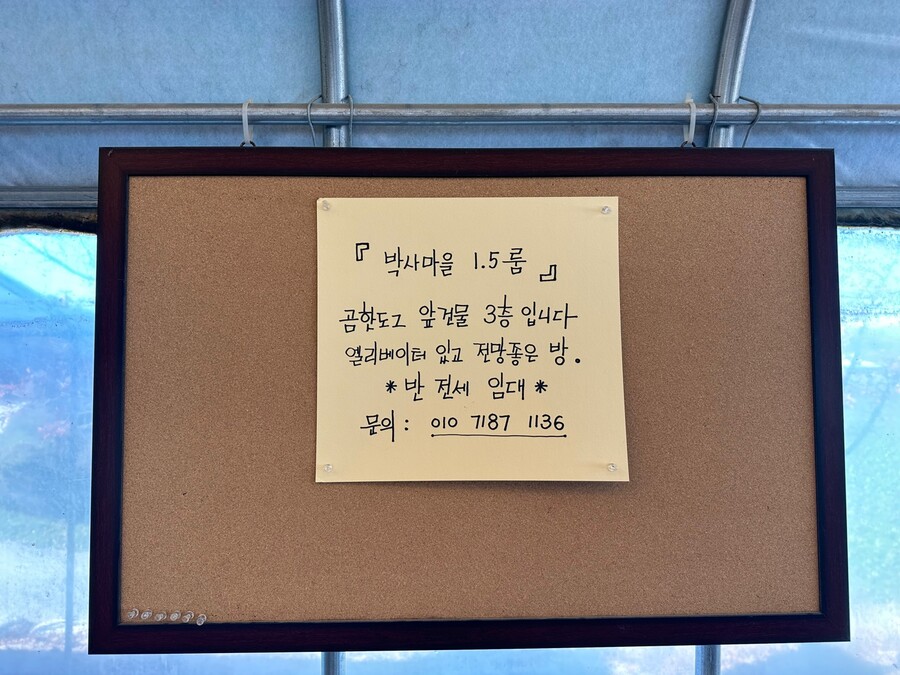 『박사마을 1.5룸』
곰한도그 앞건물 3층입니다
엘리베이터 있고 전망좋은 방.
*반 전세 임대*
문의: 010 7187 1136